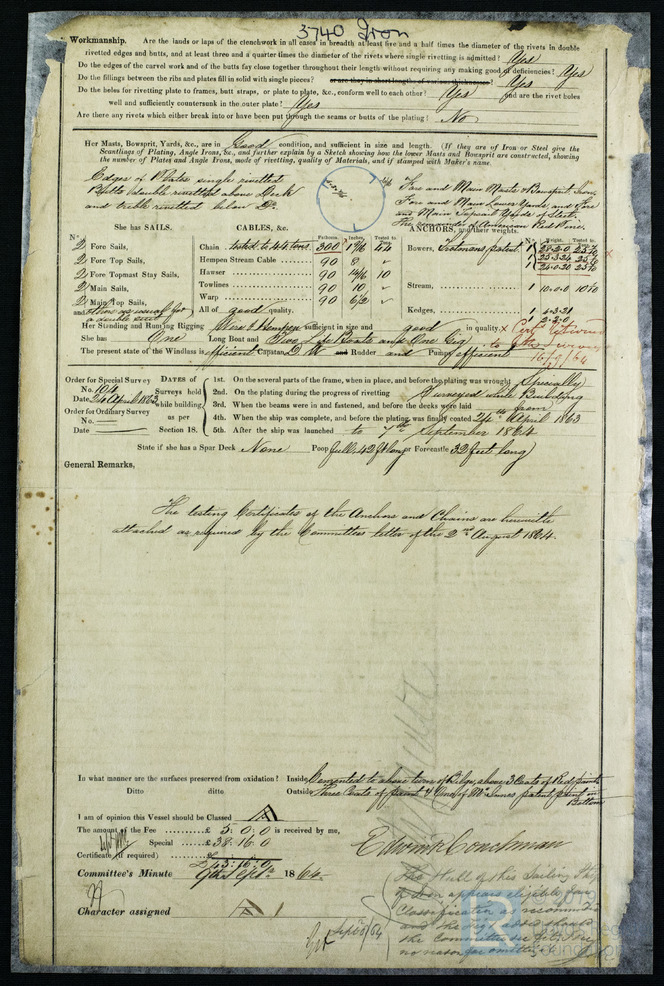 3740 Iron
Workmanship. Are the lands or laps of the clenchwork in all cases in breadth at least five and a half times the diameter of the rivets in double
rivetted edges and butts, and at least three and a quarter times the diameter of the rivets where single rivetting is admitted? Yes
Do the edges of the carvel work and of the butts fay close together throughout their length without requiring any making good of deficiencies? Yes
Do the fillings between the ribs and plates fill in solid with single pieces? or are they in short lengths of various thicknesses? Yes
Do the holes for rivetting plate to frames, butt straps, or plate to plate, &c., conform well to each other? Yes and are the rivet holes
well and sufficiently countersunk in the outer plate? Yes
Are there any rivets which either break into or have been put through the seams or butts of the plating? No
Her Masts, Bowsprit, Yards, &c., are in Good condition, and sufficient in size and length. (If they are of Iron or Steel give the
Scantlings of Plating, Angle Irons, &c., and further explain by a Sketch showing how the lower Masts and Bowsprit are constructed, showing
the number of Plates and Angle Irons, mode of rivetting, quality of Materials, and if stamped with Maker's name.
Edges of Plates single rivetted
Butts double rivetted above Deck
and treble rivetted below Do.
Fore and Main Masts & Bowsprit, Iron,
Fore and Main Lower Yards, and Fore
and Main Topsail Yards of Steel.
The remainder of American Red Pine.
She has SAILS. CABLES, &c. ANCHORS, and their weights.
No. Fathoms. Inches. Tested to No. Weight. Tested to
2 Fore Sails, Chain tested to 44 tons 300 1 9/16 44 Bowers, Trotmans patent
2 Fore Top Sails, Hempen Stream Cable 90 8
2 Fore Topmast Stay Sails, Hawser 90 14/16 10 1 24.0.20
2 Main Sails, Towlines 90 10 Stream, 1 10.0.0 10
2 Main Top Sails, Warp 90 6 1/2 Kedges, 1
and others as usual for a double suit All of good quality. 1 2.2.0
Her Standing and Running Rigging Wire & Hempen sufficient in size and good in quality.
She has One Long Boat and Two Life Boats and One Gig
The present state of the Windlass is efficient Capstan Do and Rudder and Pumps efficient
16/9/64
Order for Special Survey No. 104 Date 24 April 1863
Order for Ordinary Survey No. Date
DATES of Surveys held while building as per Section 18.
1st. On the several parts of the frame, when in place, and before the plating was wrought Specially
2nd. On the plating during the progress of rivetting Surveyed while Building
3rd. When the beams were in and fastened, and before the decks were laid from
4th. When the ship was complete, and before the plating was finally coated 24th April 1863
5th. After the ship was launched to 7th September 1864
State if she has a Spar Deck None Poop full 42 ft long or Forecastle 32 feet long
General Remarks,
The testing Certificates of the Anchors and Chains are herewith
attached as required by the Committees letter of the 2nd August 1864.
In what manner are the surfaces preserved from oxidation? Inside Cemented to above turn of Bilge, above 3 Coats of Red paint
Ditto ditto Outside Three Coats of paint & One of McInnes patent paint on
Bottom
I am of opinion this Vessel should be Classed A
The amount of the Fee £ 5: 0: 0 is received by me,
Special £ 38: 16: 0
Certificate (if required)
£ 43: 16: 0
Edwin K Couchman
Committee's Minute 9th Septr. 1864.
Character assigned A
The Hull of this Sailing Ship
of Iron appears eligible for
Classification as recommended
and
the Committee
no reason for
Septr 8/64